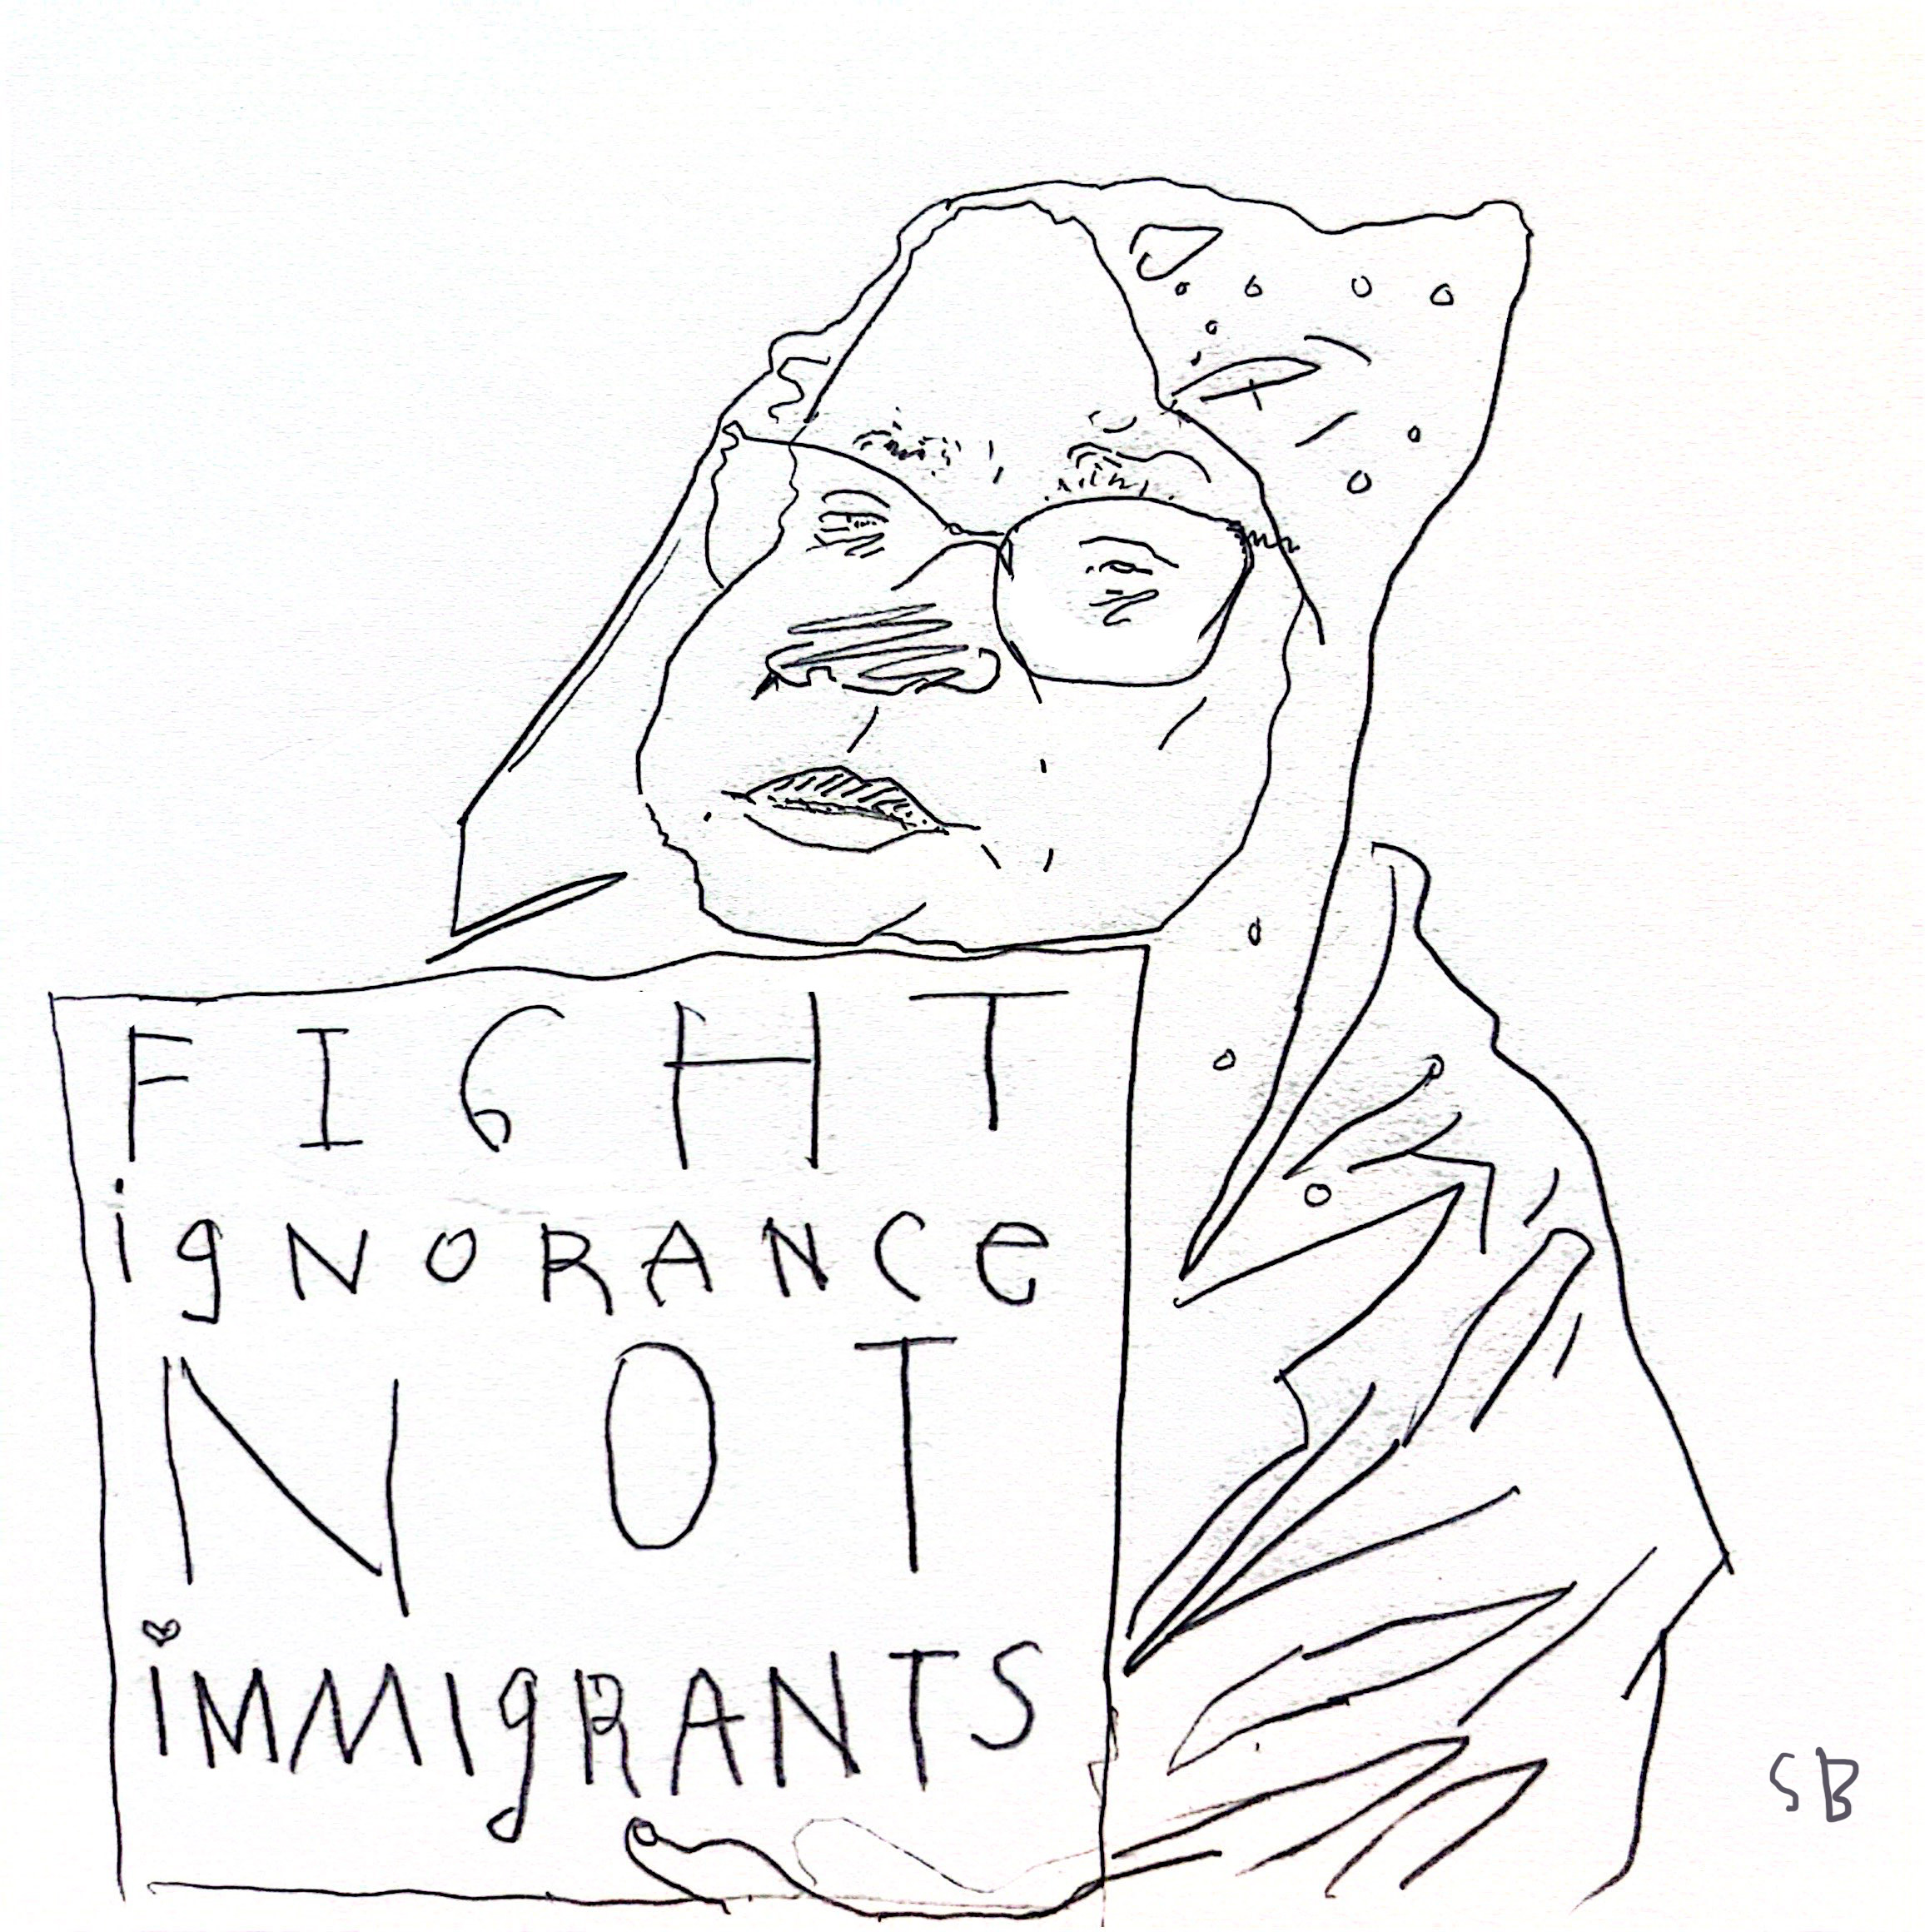 FIGHT
igNORANCe
NOT
iMMIgRANTS
SB